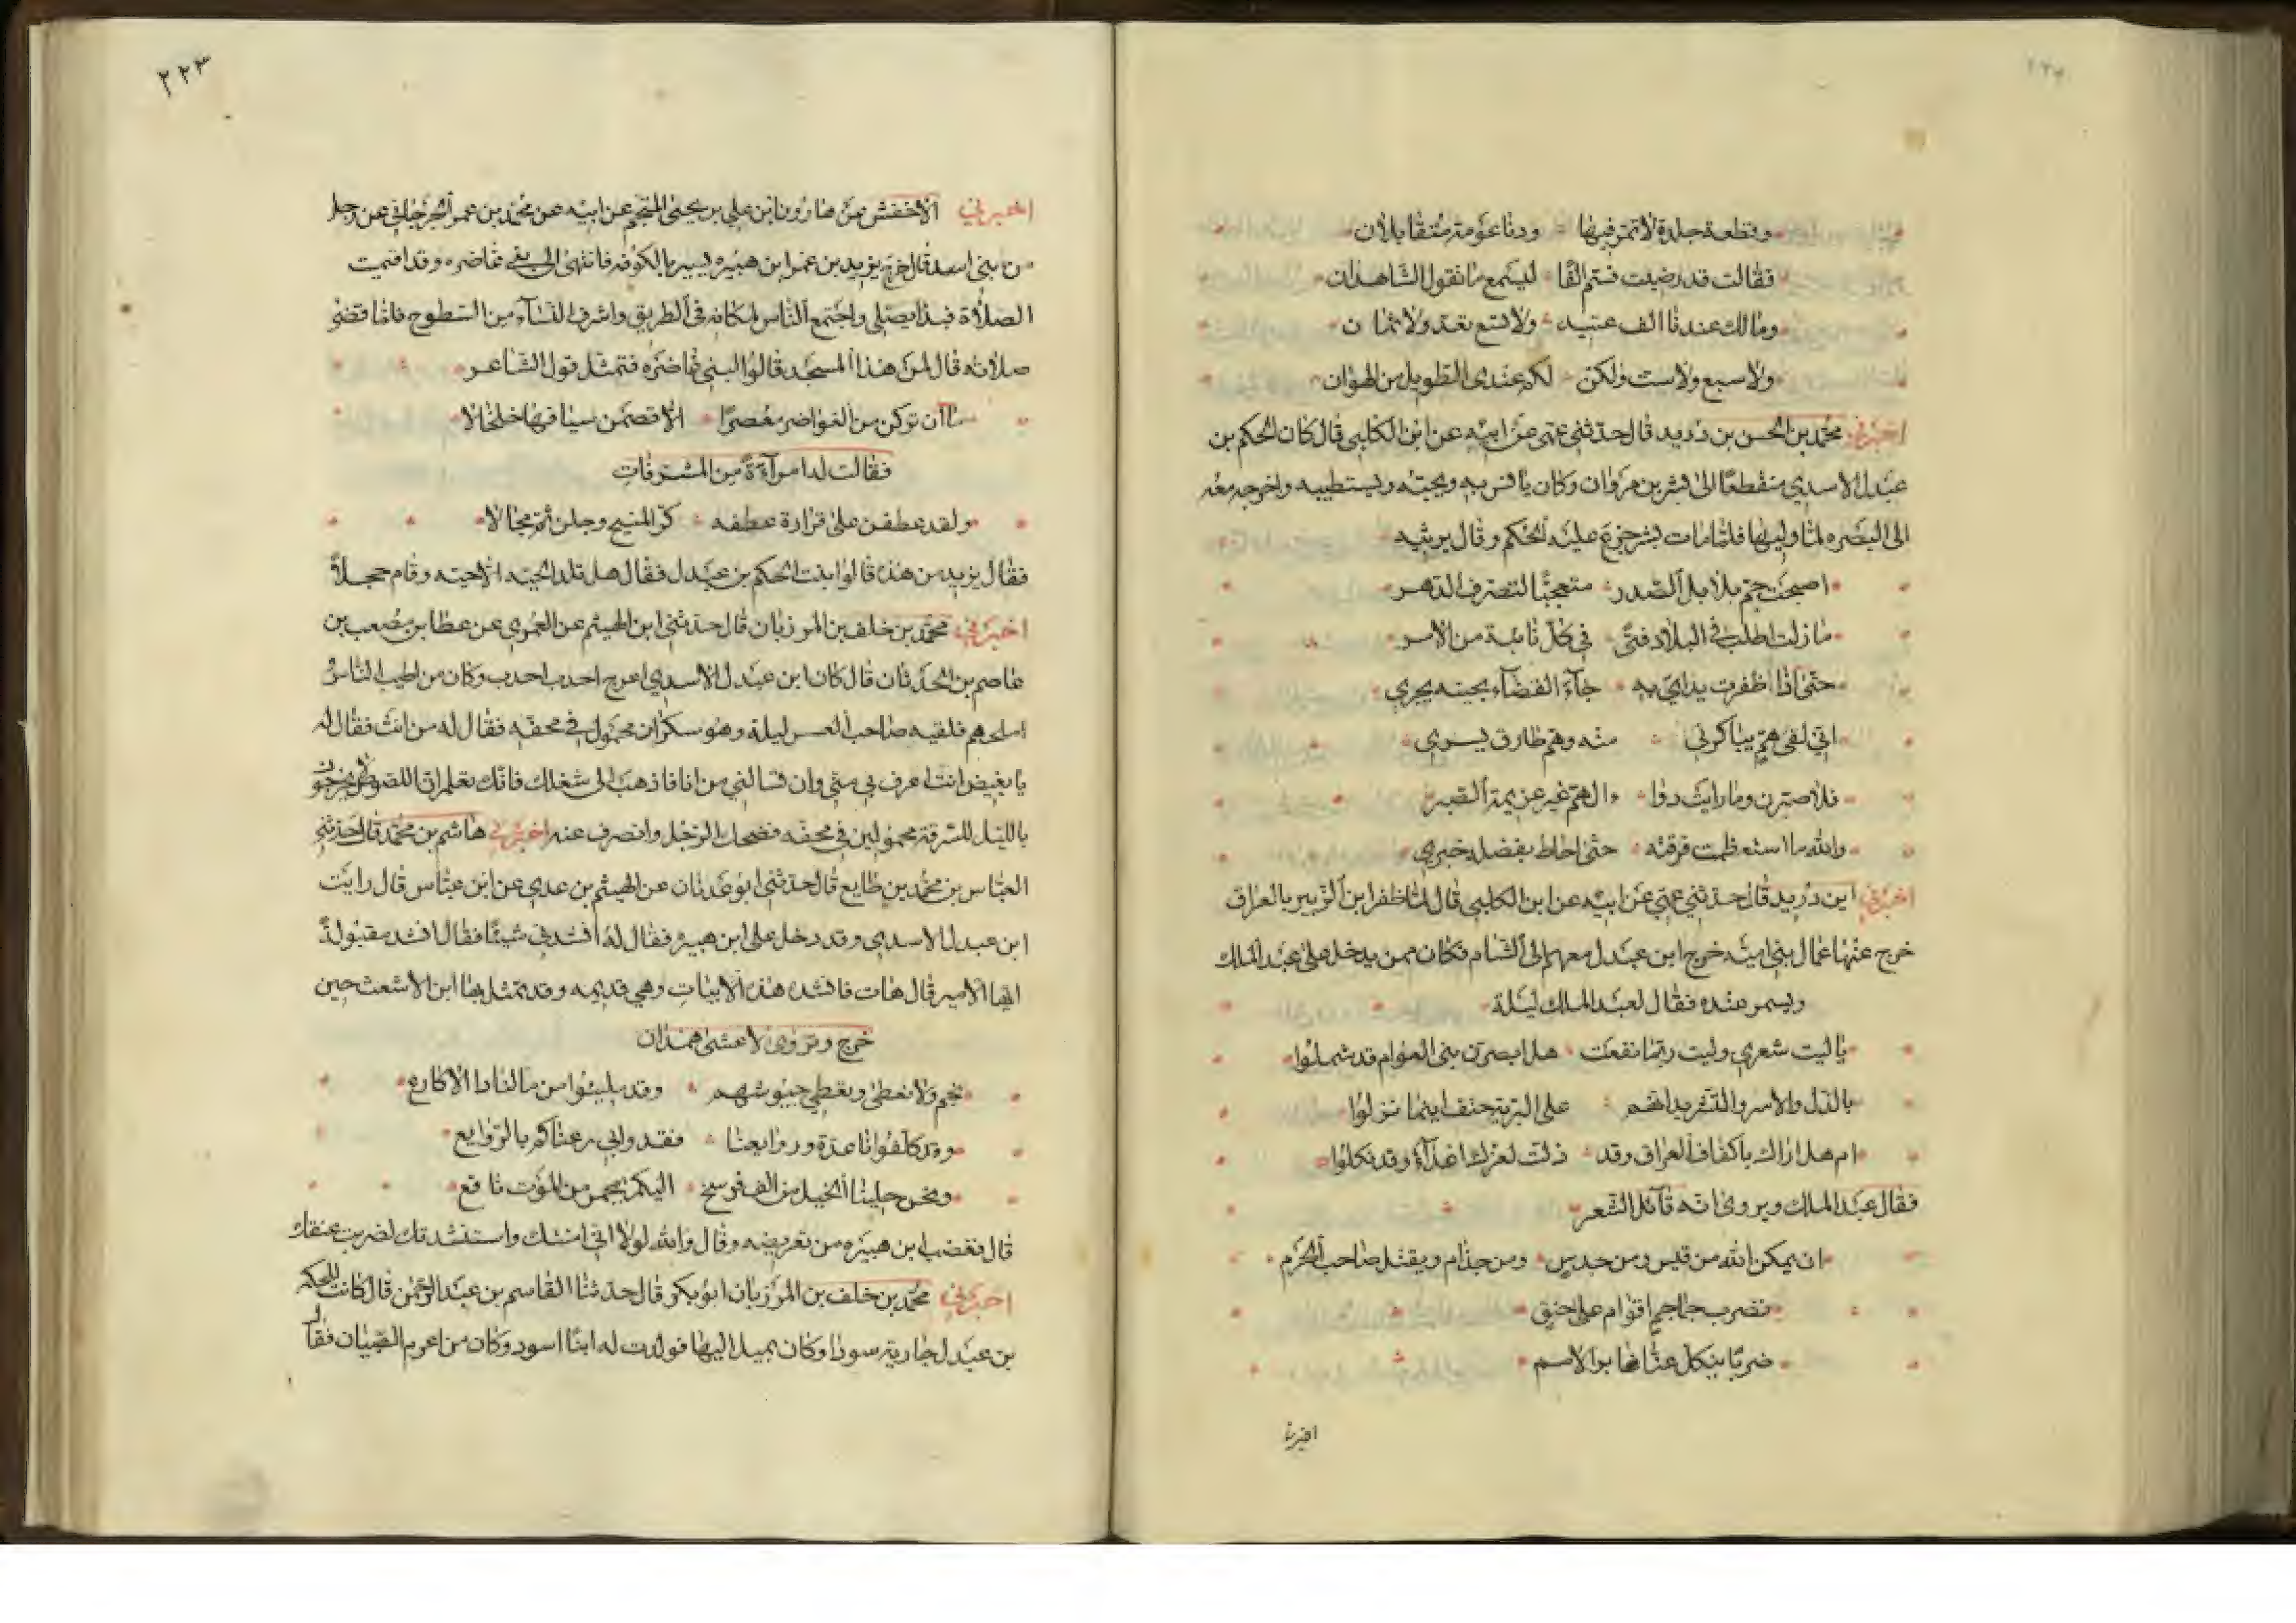 وقطعة جلدة لا تمر فيها ودنا عومة متقابلان
فقالت قد رضيت فسم الفا ليسمع ما تقول الشاهدان
ومالك عندنا الف عتيد ولا تسع تعد ولا ثمان
ولا سبع ولا ست ولكن لكم عندي الطويل من الهوان
اخبرني محمد بن الحسن بن دريد قال حدثني عمي عن ابيه عن ابن الكلبي قال كان الحكم بن
عبدل الاسدي منقطعا الى بشر بن مروان وكان يانس به ويحبه ويستطيبه واخرجه معه
الى البصره لما وليها فلما مات بشر جزع عليه الحكم وقال يرثيه
اصبحت جم بلابل الصدر متعجبا لتصرف الدهر
ما زلت اطلب في البلاد فتى في كل نائبة من الامر
حتى اذا ظفرت يداي به جاء القضاء بحينه يجري
اني لفي هم يباكرني منه وهم طارق يسري
فلاصبرن وما رايت دوا للهم غير عزيمة الصبر
والله ما استعظمت فرقته حتى احاط بفضله خبري
اخبرني ابن دريد قال حدثني عمي عن ابيه عن ابن الكلبي قال لما ظفر ابن الزبير بالعراق
خرج عنها عمال بني امية خرج ابن عبدل معهم الى الشام فكان ممن يدخل على عبد الملك
ويسمر عنده فقال لعبد الملك ليلة
يا ليت شعري وليت ربما نفعت هل ابصرن بني العوام قد شملوا
بالذل والاسر والتشريد انهم على البرية حتف اينما نزلوا
ام هل اراك باكناف العراق وقد ذلت لعزك اعداء وقد نكلوا
فقال عبد الملك ويروى انه قائل الشعر
ان يمكن الله من قيس ومن جدس ومن جذام ويقتل صاحب الحرم
نضرب جماجم اقوام على حنق
ضربا ينكل عنا غابر الامم
اخبرنا
٢٢٣
اخبرني الاخفش عن هارون ابن علي بن يحيى المنجم عن ابيه عن محمد بن عمر الجرجاني عن رجل
من بني اسد قال خرج يزيد بن عمر ابن هبيره يسير بالكوفه فانتهى الى بني غاضره وقد اقيمت
الصلاة فنزل يصلي واجتمع الناس لمكانه في الطريق واشرف النساء من السطوح فلما قضى
صلاته قال لمن هذا المسجد قالوا لبني غاضره فتمثل قول الشاعر
ما ان تركن من الغواضر معصرا الا قصمن بساقها خلخالا
فقالت له امرأة من المشرفات
ولقد عطفن على فزارة عطفه كر المنيح وجلن ثم مجالا
فقال يزيد من هذه قالوا بنت الحكم بن عبدل فقال هل تلد الحية الا حية وقام خجلا
اخبرني محمد بن خلف بن المرزبان قال حدثني ابن الهيثم عن العمري عن عطا بن مصعب بن
عاصم بن الحدثان قال كان ابن عبدل الاسدي اعرج احدب احدب وكان من اطيب الناس
املحهم فلقيه صاحب العسس ليلة وهو سكران محمول في محفه فقال له من انت فقال له
يا بغيض انت اعرف بي مني وان تسالني من انا فاذهب الى شغلك فانك تعلم ان اللصوص لا يخرجون
بالليل للسرقة محمولين في محفه فضحك الرجل وانصرف عنه اخبرني هاشم بن محمد قال حدثني
العباس بن محمد بن طايع قال حدثني ابو عدنان عن الهيثم بن عدي عن ابن عباس قال رايت
ابن عبدل الاسدي وقد دخل على ابن هبيره فقال له انشدني شيئا فقال انشد مقبولة
ايها الامير قال هات فانشده هذه الابيات وهي قديمه وقد تمثل بها ابن الاشعث حين
خرج وتروى لاعشى همدان
نجم ولا نعطى وتعطي جيوشهم وقد ملئوا من مالنا ذا الاكارع
وقد كلفونا عدة وروابعا فقد وابي رعناكم بالروايع
ونحن جلبنا الخيل من الف فرسخ اليكم بمحمر من الموت ناقع
قال فغضب ابن هبيره من تعريضه وقال والله لولا اني امنتك واستنشدتك لضربت عنقك
اخبرني محمد بن خلف بن المرزبان ابو بكر قال حدثنا القاسم بن عبد الرحمن قال كانت للحكم
بن عبدل جارية سودا وكان يميل اليها فولدت له ابنا اسود وكان من اعرم الصبيان فقال